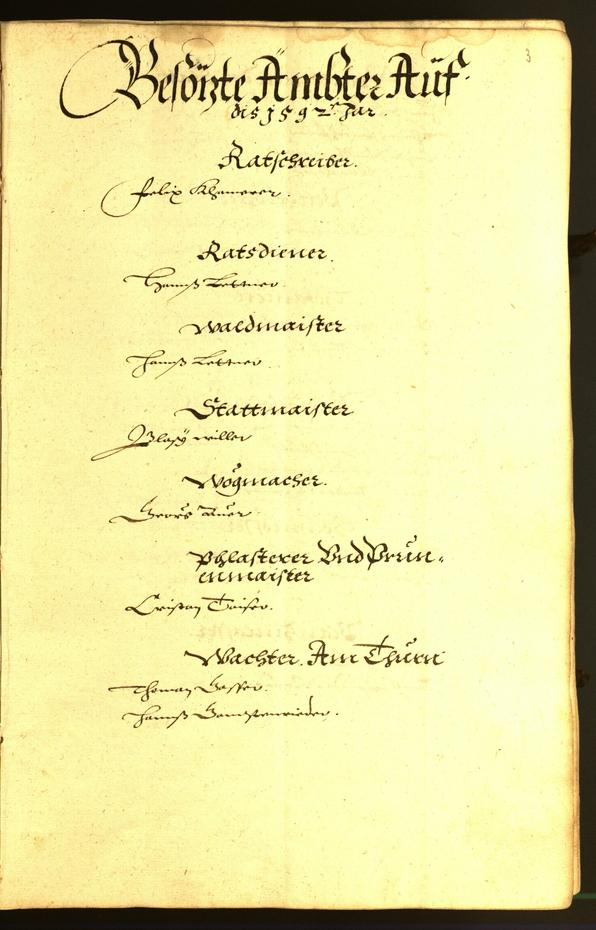 3
Besözte Ämbter Auf
dis 1592 Jar.
Ratschreiber.
Felix Khamerer.
Ratsdiener.
Hannß Lettner.
Waldmaister
Hannß Lettner.
Stattmaister
Blasÿ
Wögmacher.
Georg Aŭer
Phlasterer Vnd Prŭn-
enmaister
Cristan
Wachter. Am Thŭrn
Thoman Gasser.
Hannß